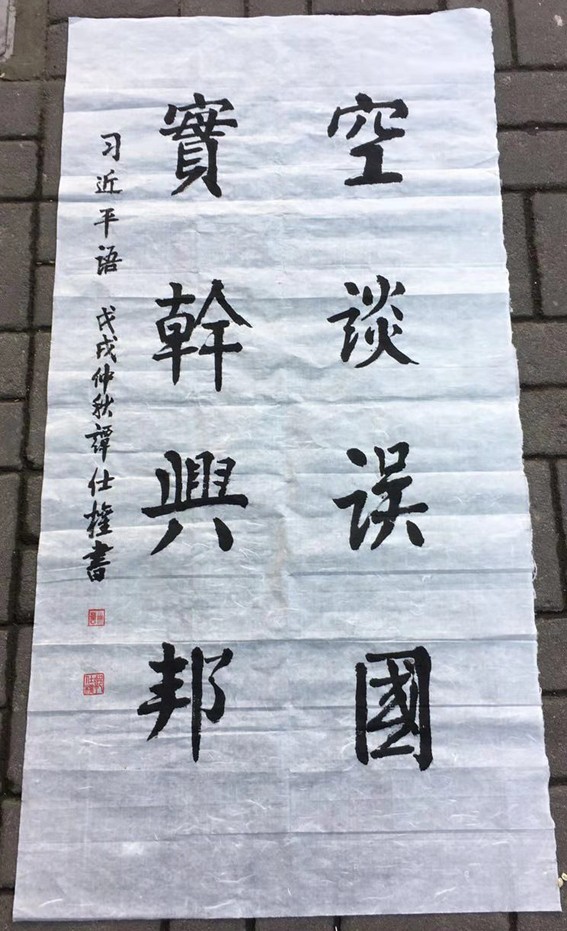 空谈误國
實幹興邦
习近平语 戊戌仲秋譚仕權書